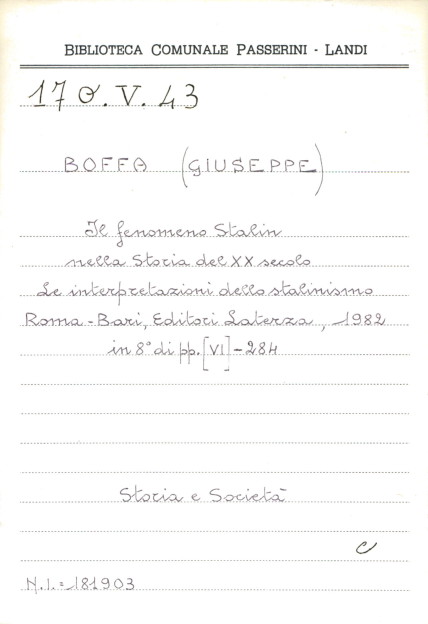 BIBLIOTECA COMUNALE PASSERINI - LANDI
17 O.V. 43
BOFFA (GIUSEPPE)
Il fenomeno Stalin
nella Storia del XX secolo
Le interpretazioni dello stalinismo
Roma - Bari, Editori Laterza, 1982
in 8° di pp. [VI] - 284
Storia e Società
C
N.I. = 181903